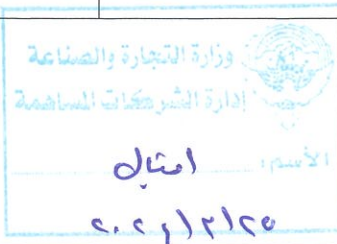 وزارة التجارة والصناعة
إدارة الشركات المساهمة
الأسم: امثال
٢٠٢٤/٣/٢٥